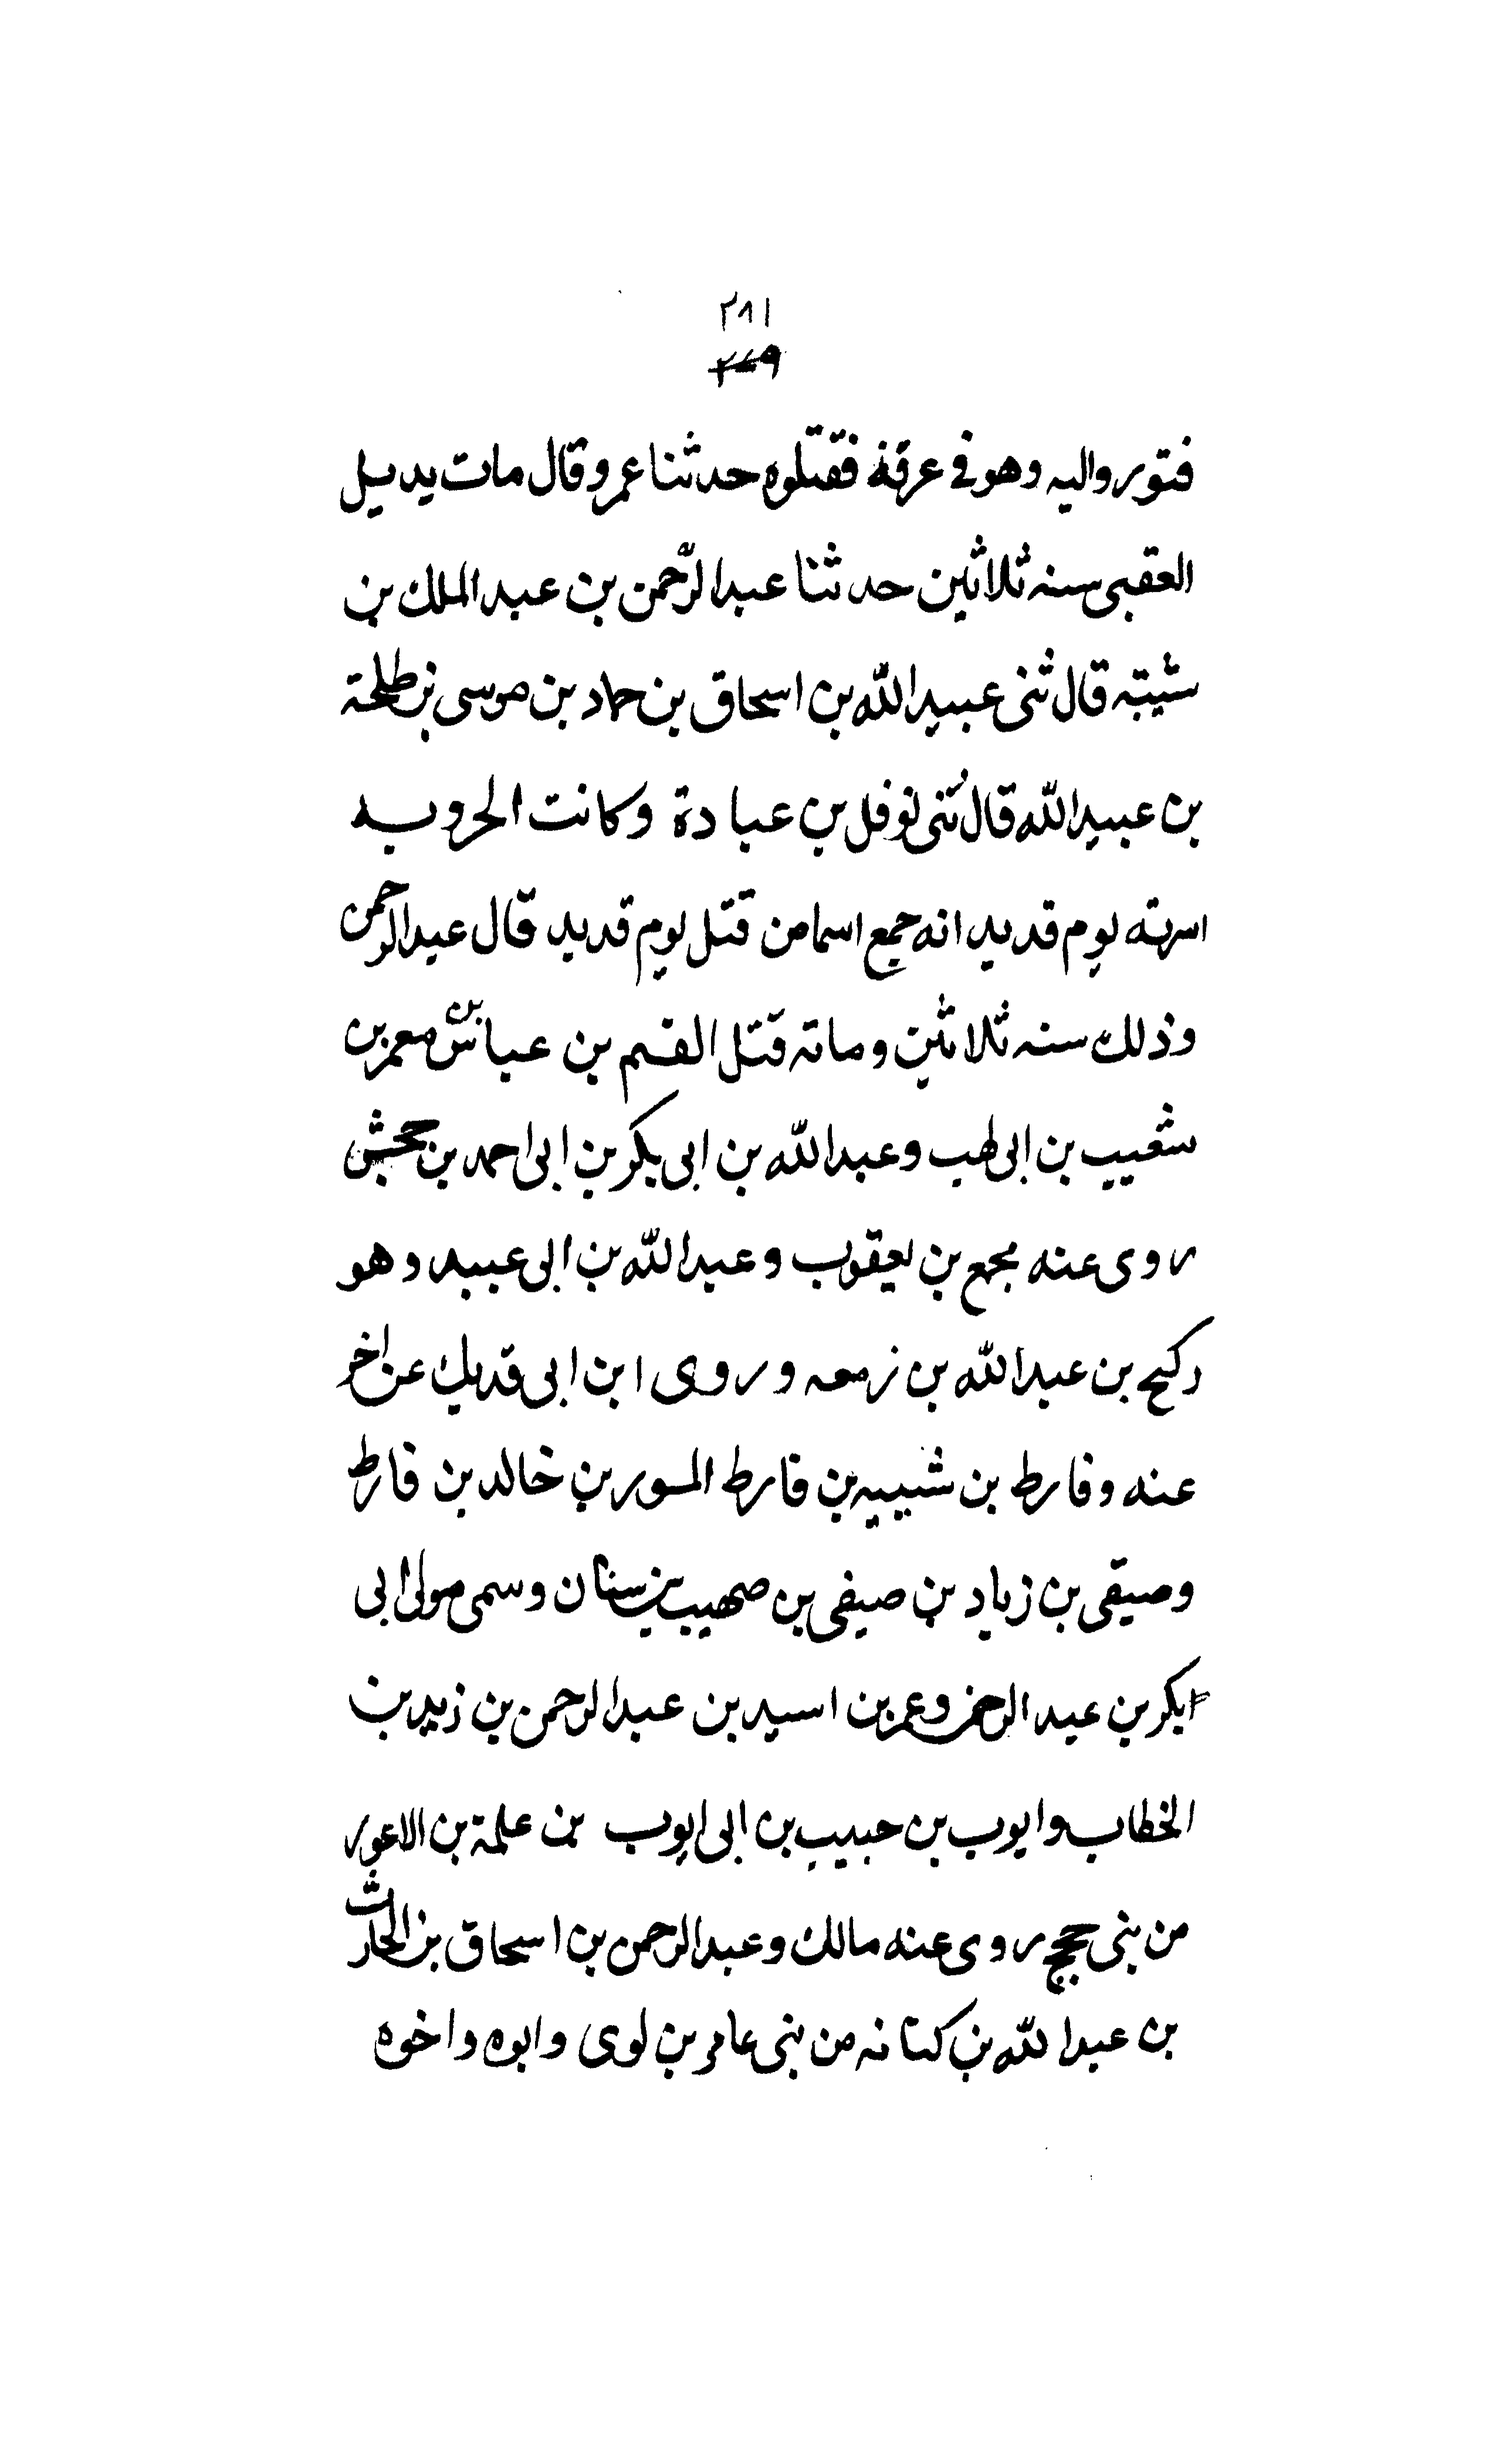 ٢٨١
فتوروا اليه وهو فى عرفة فقتلوه حدثنا عمرو قال مات يديل
العقبى سنه ثلاثين حدثنا عبد الرّحمن بن عبد الملك بن
شيبته قال ثنى عبيد الله بن اسحاق بن حماد بن موسى بن طلحة
بن عبيد الله قال ثنى نوفل بن عبادة وكانت الحروبه
اسرته يوم قديد انه جمع اسما من قتل يوم قديد قال عبد الرحمن
وذلك سنه ثلاثين ومائه قتل القسم بن عباس بن معمر بن
شعيب بن ابى لهب وعبد الله بن ابى بكر بن ابى احمد بن جحش
روى عنه مجمع بن يعقوب وعبد الله بن ابى عبيد وهو
ركيح بن عبد الله بن زمعه وروى ابن ابى قديك عن اخر
عنه وفارط بن شبيبه بن فارط المسور بن خالد بن فارط
وصيقى بن زياد بن صيفى بن صهيب بن سنان وسمى مولى ابى
ابكر بن عبد الرحمن وعمر بن اسيد بن عبد الرحمن بن زيد بن
الخطاب وايوب بن حبيب بن ابى ايوب بن علمة بن الاعور
من بنى جحج روى عنه مالك وعبد الرحمن بن اسحاق بن الحارث
بن عبد الله بن كنانه من بنى عامر بن لوى وابوه واخوه